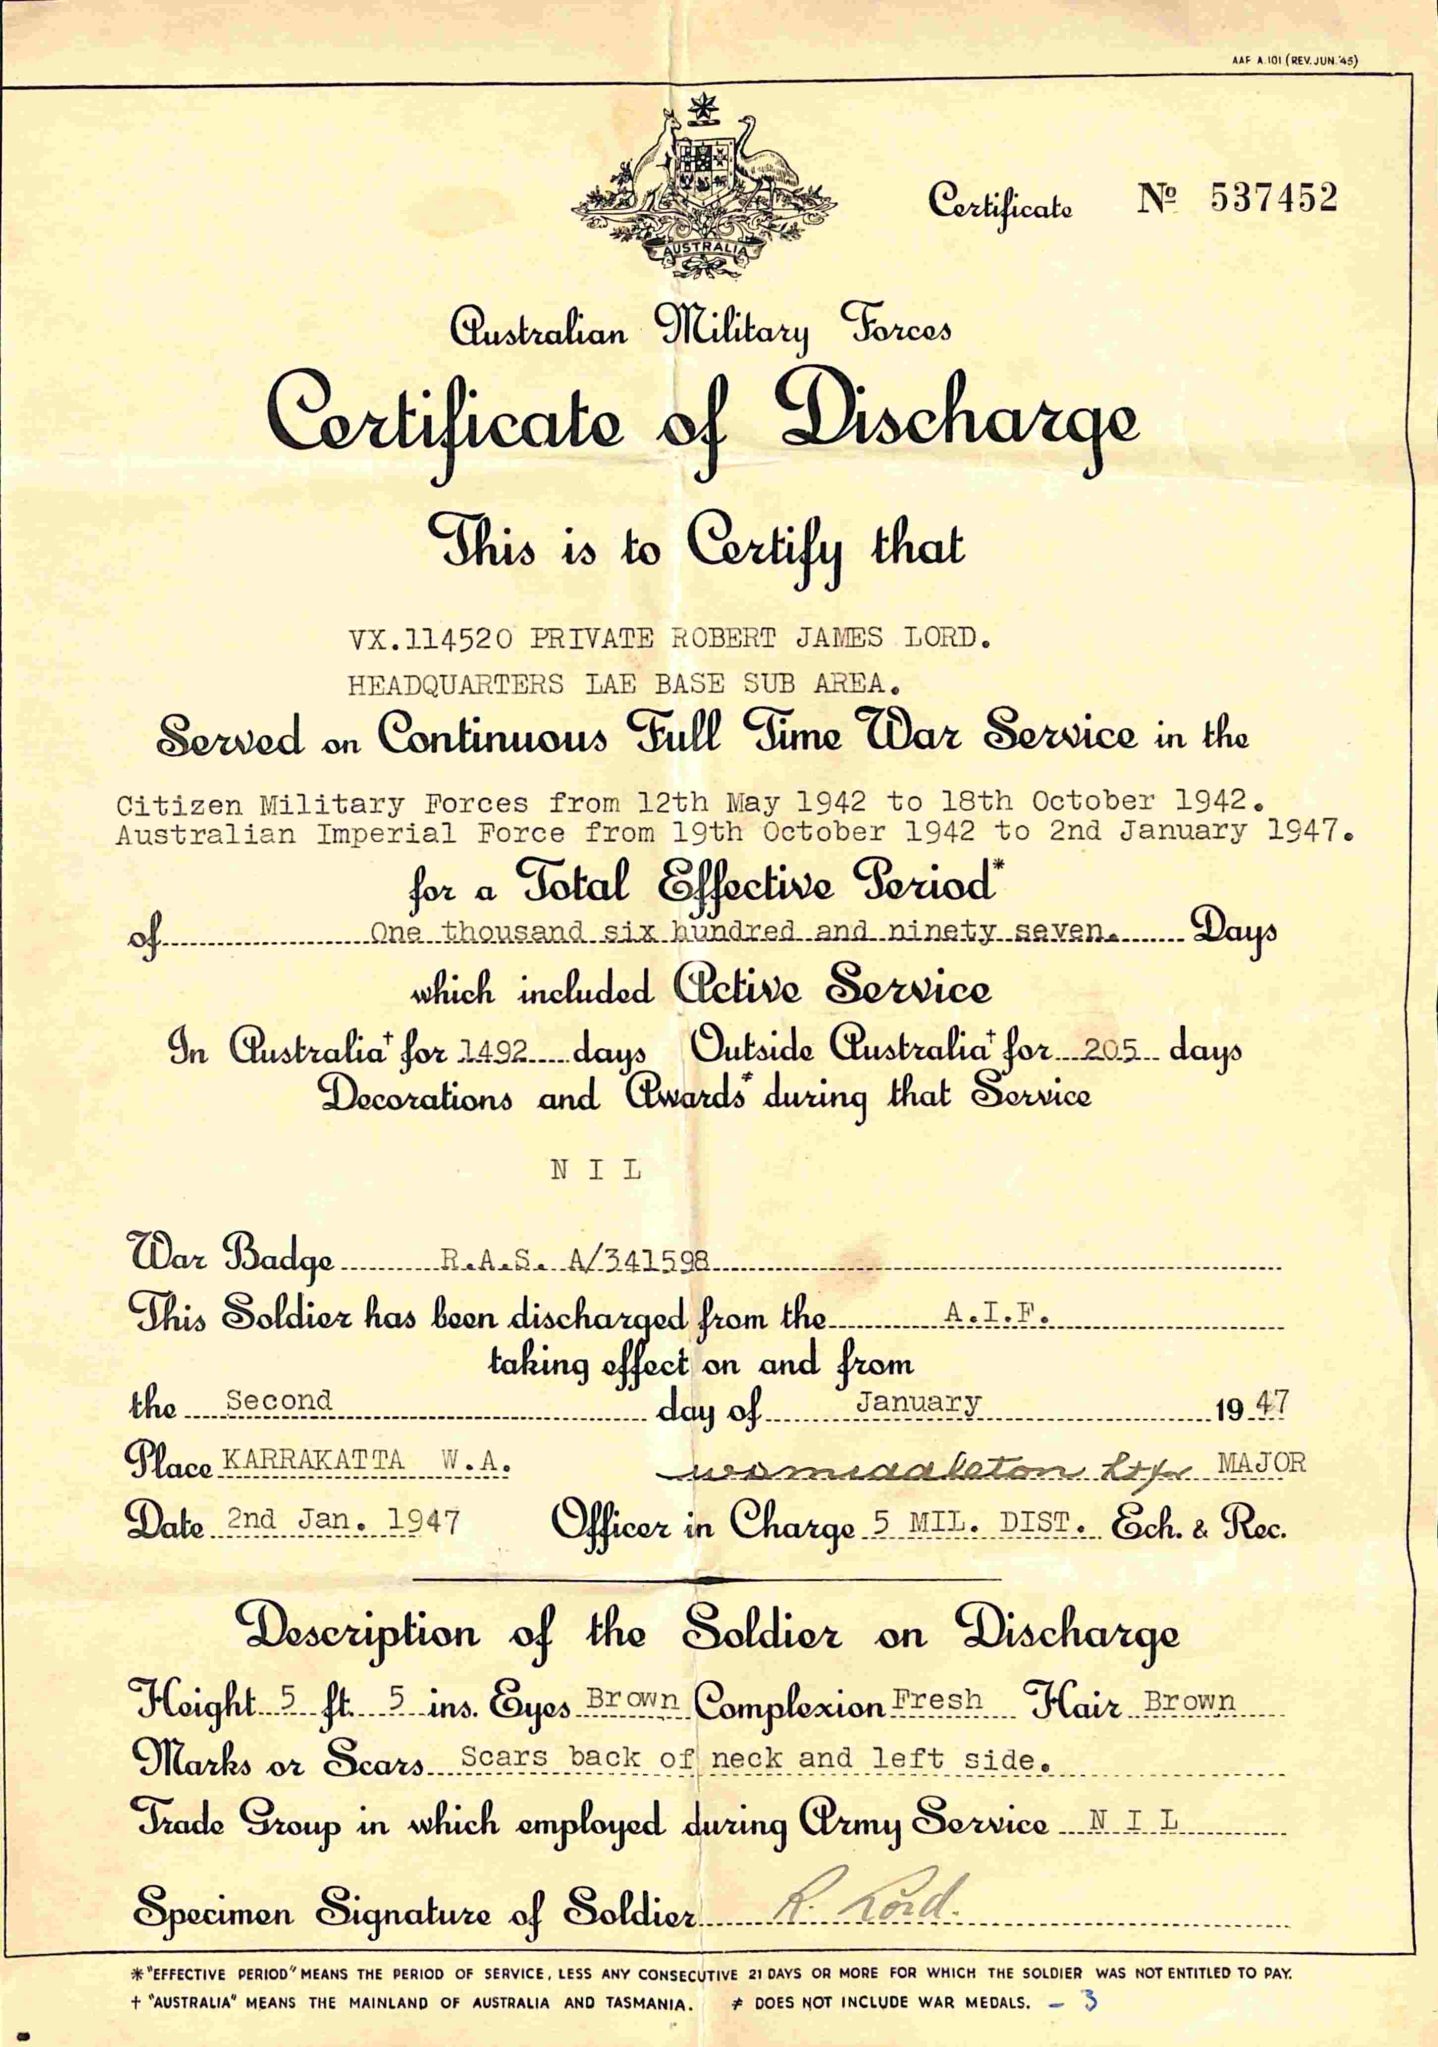 AAF A.101 (REV. JUN. '45)
AUSTRALIA
Certificate Nº 537452
Australian Military Forces
Certificate of Discharge
This is to Certify that
VX.114520 PRIVATE ROBERT JAMES LORD.
HEADQUARTERS LAE BASE SUB AREA.
Served on Continuous Full Time War Service in the
Citizen Military Forces from 12th May 1942 to 18th October 1942.
Australian Imperial Force from 19th October 1942 to 2nd January 1947.
for a Total Effective Period*
of One thousand six hundred and ninety seven. Days
which included Active Service
In Australia† for 1492 days Outside Australia† for 205 days
Decorations and Awards≠ during that Service
N I L
War Badge R.A.S. A/341598
This Soldier has been discharged from the A.I.F.
taking effect on and from
the Second day of January 1947
Place KARRAKATTA W.A. MAJOR
Date 2nd Jan. 1947 Officer in Charge 5 MIL. DIST. Ech. & Rec.
Description of the Soldier on Discharge
Height 5 ft. 5 ins. Eyes Brown Complexion Fresh Hair Brown
Marks or Scars Scars back of neck and left side.
Trade Group in which employed during Army Service N I L
Specimen Signature of Soldier R. Lord.
*"EFFECTIVE PERIOD" MEANS THE PERIOD OF SERVICE, LESS ANY CONSECUTIVE 21 DAYS OR MORE FOR WHICH THE SOLDIER WAS NOT ENTITLED TO PAY.
† "AUSTRALIA" MEANS THE MAINLAND OF AUSTRALIA AND TASMANIA. ≠ DOES NOT INCLUDE WAR MEDALS. – 3